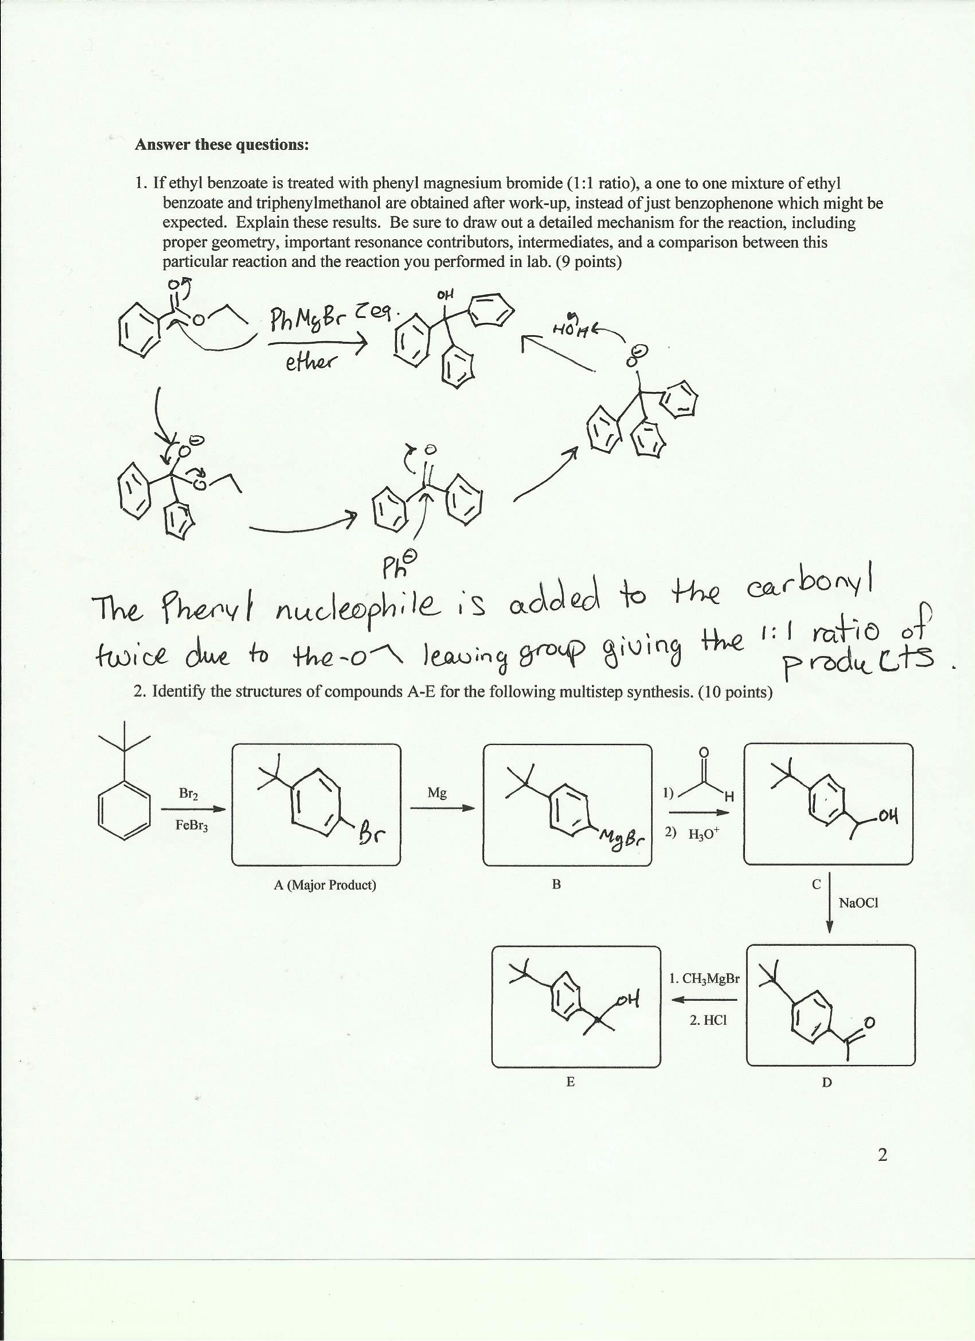 Answer these questions:
1. If ethyl benzoate is treated with phenyl magnesium bromide (1:1 ratio), a one to one mixture of ethyl
benzoate and triphenylmethanol are obtained after work-up, instead of just benzophenone which might be
expected. Explain these results. Be sure to draw out a detailed mechanism for the reaction, including
proper geometry, important resonance contributors, intermediates, and a comparison between this
particular reaction and the reaction you performed in lab. (9 points)
O
O
PhMgBr 2eq.
ether
OH
HOH
O⊖
O⊖
O
O
Ph⊖
The Phenyl nucleophile is added to the carbonyl
twice due to the -O leaving group giving the 1:1 ratio of
products.
2. Identify the structures of compounds A-E for the following multistep synthesis. (10 points)
Br₂
FeBr₃
Br
A (Major Product)
Mg
MgBr
B
O
1) H
2) H₃O⁺
OH
C
NaOCl
O
D
1. CH₃MgBr
2. HCl
OH
E
2